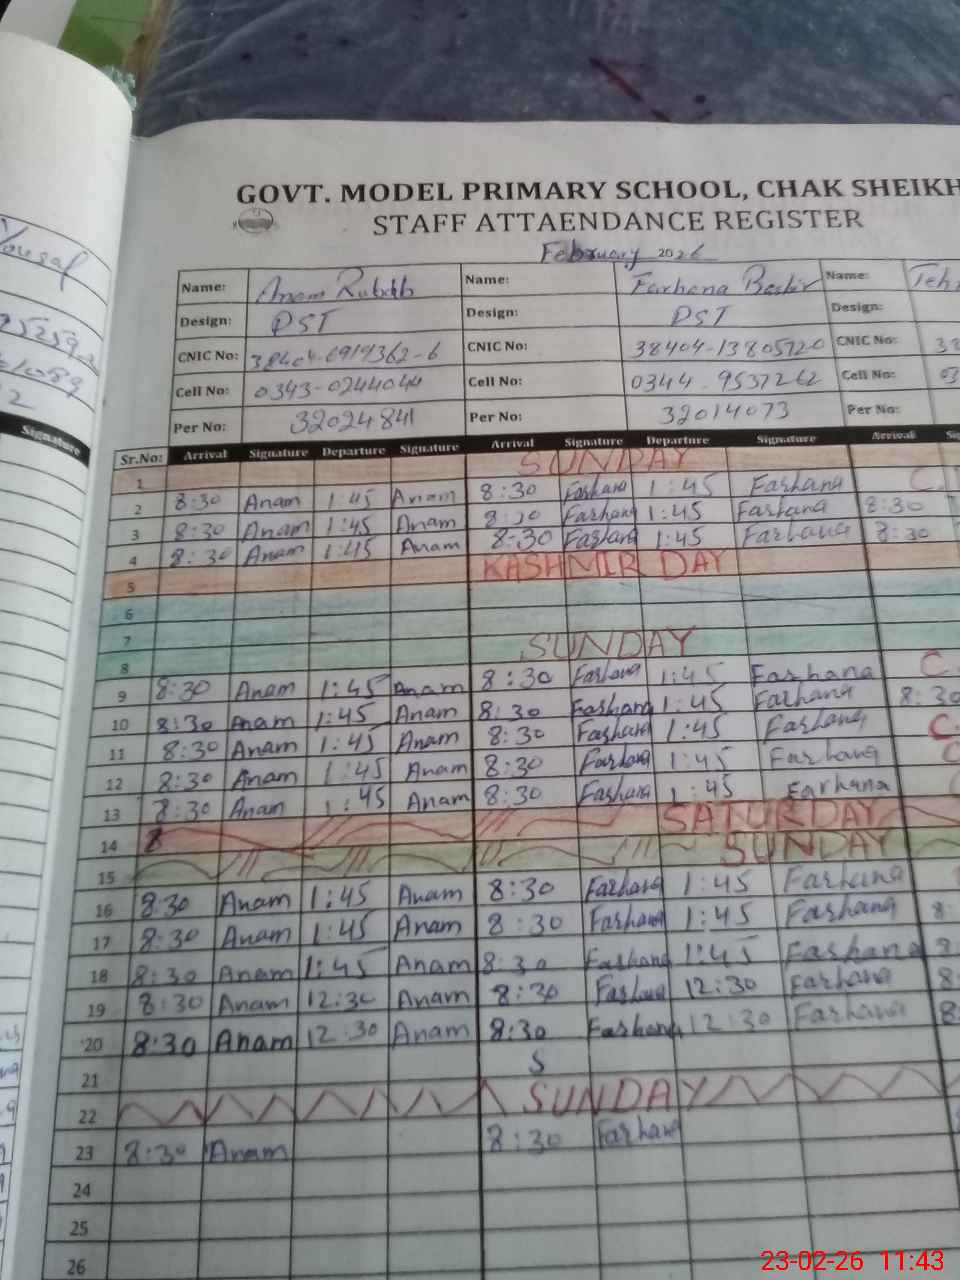 GOVT. MODEL PRIMARY SCHOOL, CHAK SHEIKH
STAFF ATTAENDANCE REGISTER
February 2026
Name: Anam Name: Farhana Bashir Name:
Design: PST Design: PST Design:
CNIC No: 38404-6919362-6 CNIC No: 38404-13805720 CNIC No: 38
Cell No: 0343-0244044 Cell No: 0344-9537262 Cell No: 03
Per No: 32024841 Per No: 32014073 Per No:
Signature
Sr.No: Arrival Signature Departure Signature Arrival Signature Departure Signature Arrival
1 SUNDAY
2 8:30 Anam 1:45 Anam 8:30 Farhana 1:45 Farhana C.
3 8:30 Anam 1:45 Anam 8:30 Farhana 1:45 Farhana 8:30
4 8:30 Anam 1:45 Anam 8:30 Farhana 1:45 Farhana 8:30
5 KASHMIR DAY
6
7
8 SUNDAY
9 8:30 Anam 1:45 Anam 8:30 Farhana 1:45 Farhana C.
10 8:30 Anam 1:45 Anam 8:30 Farhana 1:45 Farhana 8:30
11 8:30 Anam 1:45 Anam 8:30 Farhana 1:45 Farhana C.
12 8:30 Anam 1:45 Anam 8:30 Farhana 1:45 Farhana
13 8:30 Anam 1:45 Anam 8:30 Farhana 1:45 Farhana
14 8 SATURDAY
15 SUNDAY
16 8:30 Anam 1:45 Anam 8:30 Farhana 1:45 Farhana
17 8:30 Anam 1:45 Anam 8:30 Farhana 1:45 Farhana 8:
18 8:30 Anam 1:45 Anam 8:30 Farhana 1:45 Farhana
19 8:30 Anam 12:30 Anam 8:30 Farhana 12:30 Farhana 8:
20 8:30 Anam 12:30 Anam 8:30 Farhana 12:30 Farhana 8:
21 S
22 SUNDAY
23 8:30 Anam 8:30 Farhana
24
25
26
23-02-26 11:43